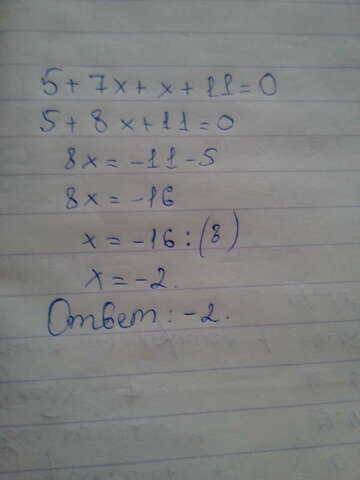 5 + 7x + x + 11 = 0
5 + 8x + 11 = 0
8x = -11 - 5
8x = -16
x = -16 : (8)
x = -2.
Ответ: -2.